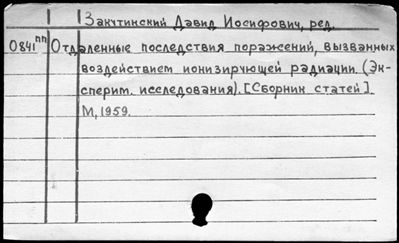 Закутинский Давид Иосифович, ред.
0841пп Отдаленные последствия поражений, вызванных
воздействием ионизирующей радиации. (Эк-
сперим. исследования). [Сборник статей]
М, 1959.